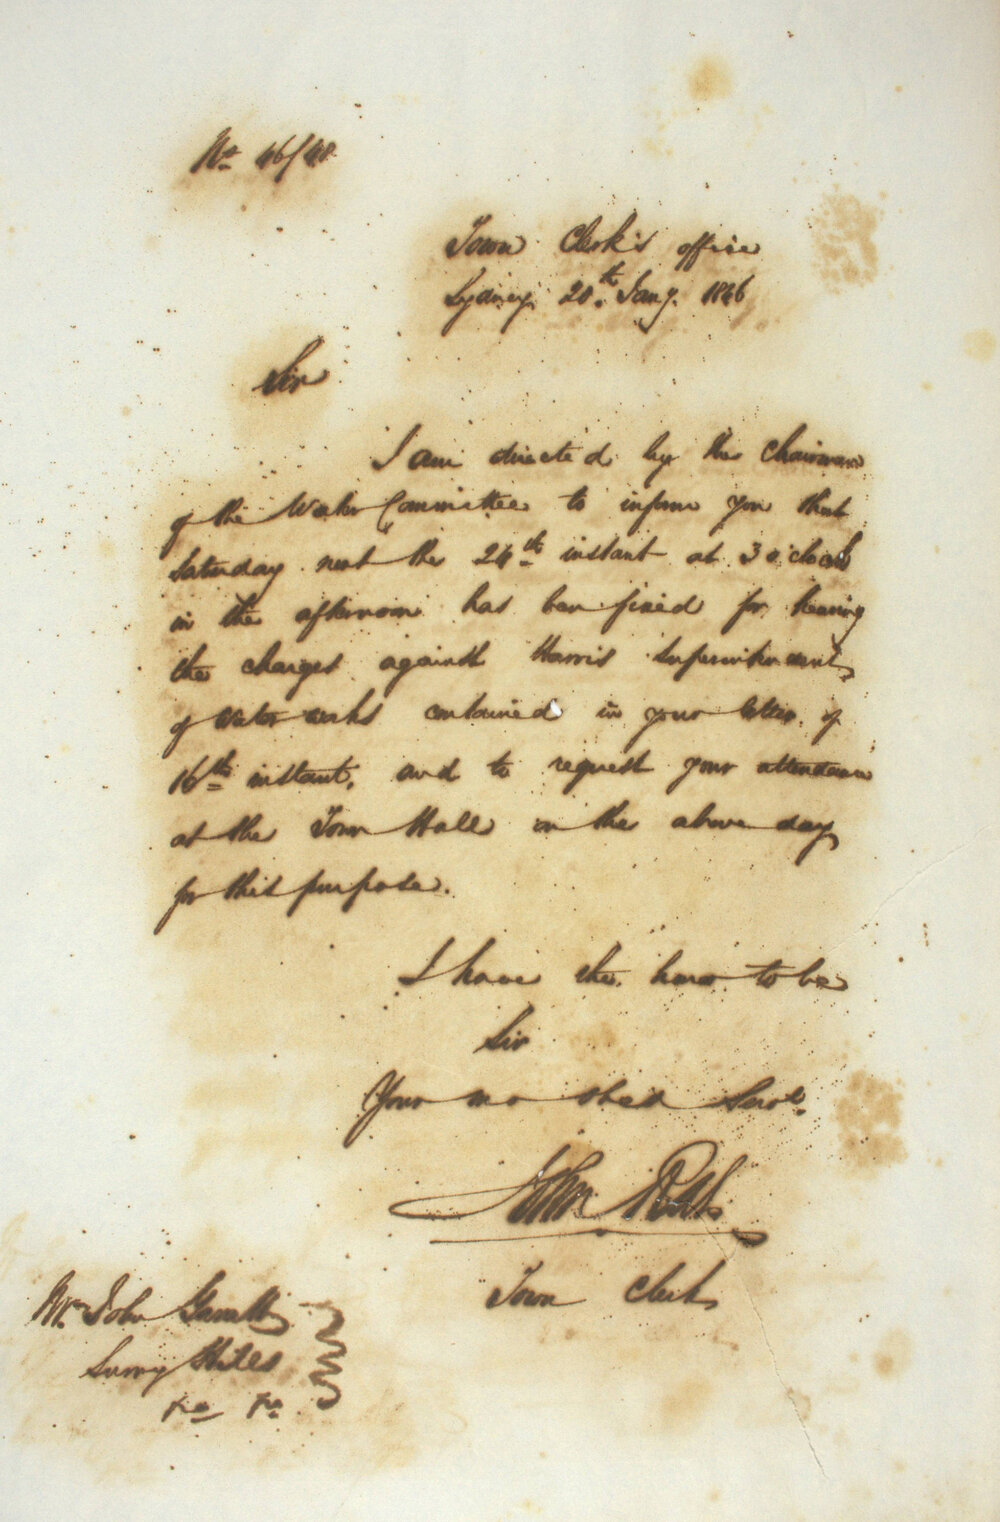 No 46/48
Town Clerk's office
Sydney 20th Jany. 1846
Sir
I am directed by the Chairman
of the Water Committee to inform you that
Saturday next the 24th instant at 3 o'clock
in the afternoon has been fixed for hearing
the charges against Harris Superintendent
of Water works contained in your letter of
16th instant, and to request your attendance
at the Town Hall on the above day
for this purpose.
I have the honor to be
Sir
Your mo obed Servt.
John
Town Clerk
Mr. John
Surry Hills